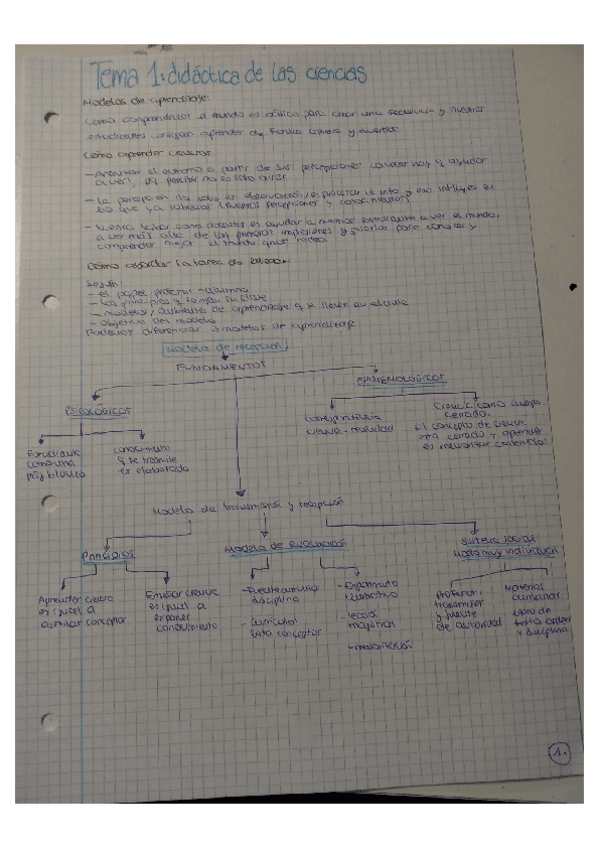 Tema 1: didáctica de las ciencias
Modelos de aprendizaje:
Como comprendemos el mundo es básico para crear una secuencia y nuestros
estudiantes consigan aprender de forma abierta y
Cómo aprender ciencias:
- Analizar el entorno a partir de sus percepciones conocer hay q ayudar
a ver, pq percibir no es solo mirar
- la percepción no solo es observación, es procesar la info y eso influye en
lo que ya sabemos (nuestras percepciones y conocimientos)
- nuestra labor como docentes es ayudar a nuestros estudiantes a ver el mundo,
a ver más allá de las primeras impresiones y guiarlos para conocer y
comprender mejor el mundo que rodea
Cómo abordar la tarea de
Según:
- el papel profesor - alumno
- los principios q
- modelos / de aprendizaje q se lleven en el aula
- objetivo del modelo
Podemos diferenciar 3 modelos de aprendizaje
Modelo de recepción
FUNDAMENTOS
PSICOLÓGICOS
EPISTEMOLÓGICOS
Estudiante
como una
pág blanco
conocimiento
q se trasmite
ya elaborado
correspondencia
ciencia - realidad
Ciencia como cuerpo
cerrado.
El concepto de ciencia
está cerrado y aprender
es memorizar contenidos.
Modelo de transmisión y recepción
Principios
Modelo de evaluación
Sistema social
Modo muy individual
Aprender ciencia
es igual a
asimilar conceptos
Enseñar ciencia
es igual a
exponer
conocimiento
- Fuente currículo
disciplina
- currículo:
lista conceptos
lección
magistral
- memorización
Profesor:
trasmisor
y fuente
de autoridad
Material
curricular
libro de
texto
y disciplina
1.